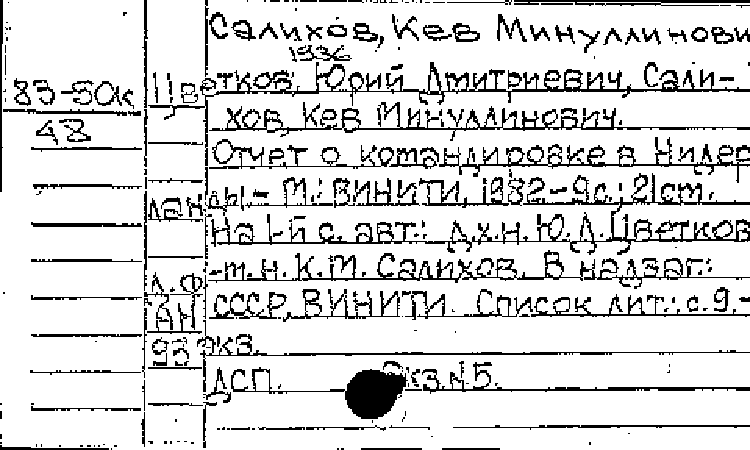 Салихов, Кев Минуллинови
1936
83-50к Цветков, Юрий Дмитриевич, Сали-
48 хов, Кев Минуллинович.
Отчет о командировке в Нидер
ланды.- М.: ВИНИТИ, 1982-9с.; 21см.
На 1-й с. авт.: д.х.н. Ю.Д. Цветков
-м.н. К.М. Салихов. В надзаг.:
АН СССР, ВИНИТИ. Список лит.: с.9.-
93 экз.
ДСП. Экз.№5.